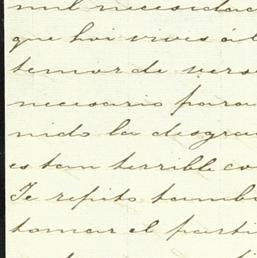 mil necesidad
que hoi vives á l
temor de verse
necesario para
nido la desgra
es tan terrible co
Te repito tambi
tomar el parti